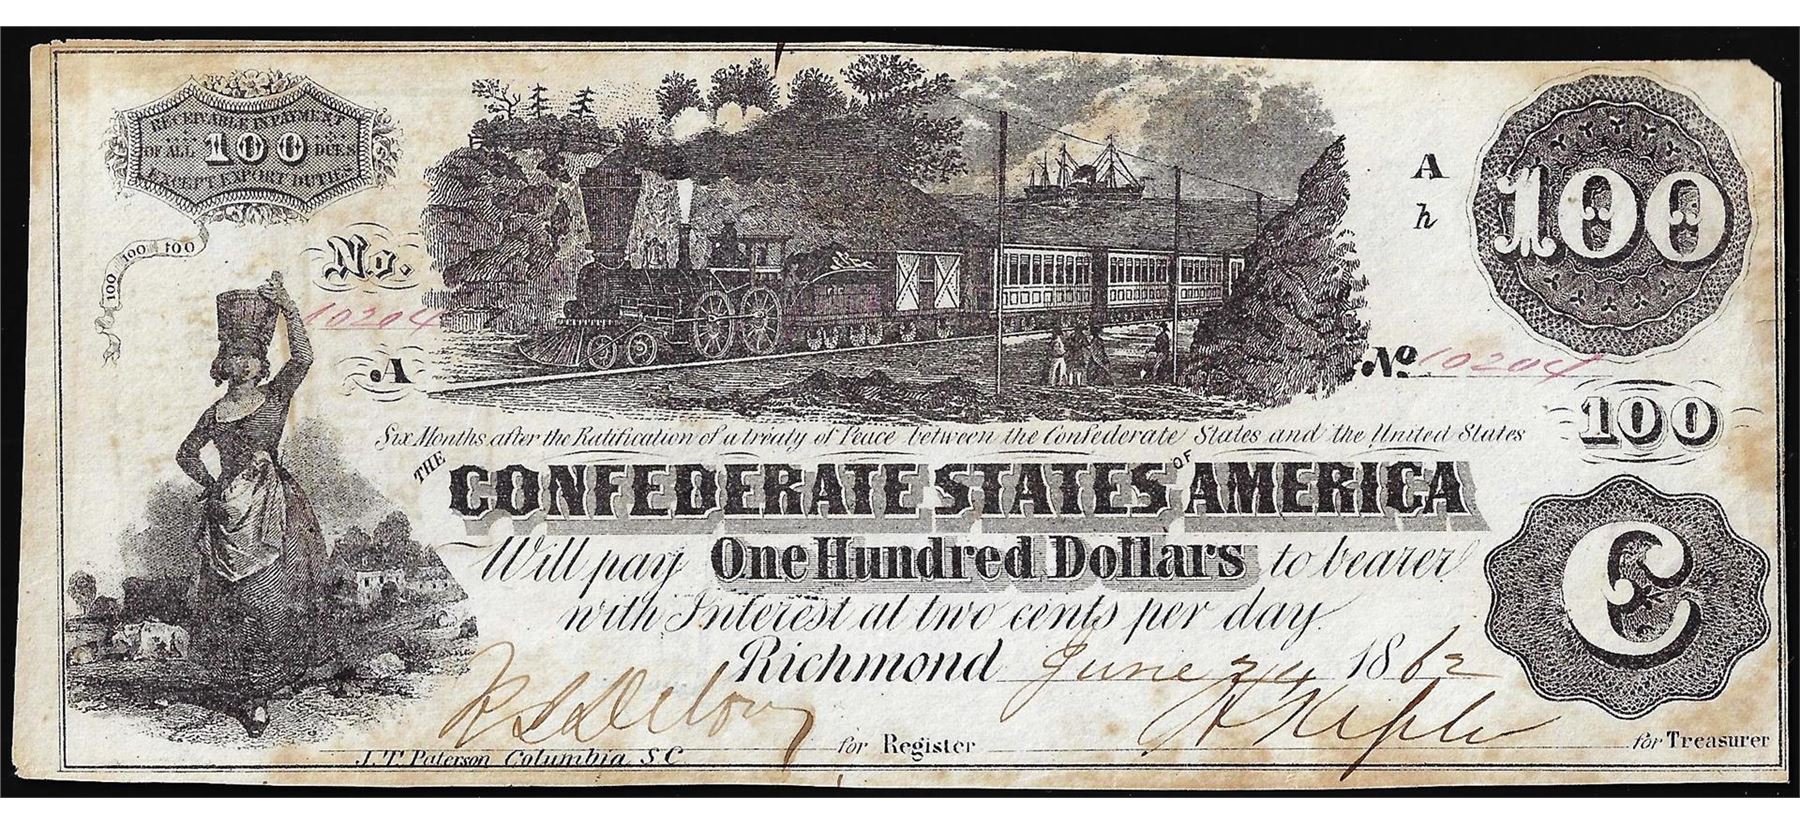 RECEIVABLE IN PAYMENT
OF ALL 100 DUES
EXCEPT EXPORT DUTIES
100 100 100
No. 10204
A
A
h
100
No 10204
100
Six Months after the Ratification of a treaty of Peace between the Confederate States and the United States
THE CONFEDERATE STATES OF AMERICA
Will pay One Hundred Dollars to bearer
with Interest at two cents per day.
C
Richmond June 24 1862
for Register
for Treasurer
J.T. Paterson Columbia, S.C.